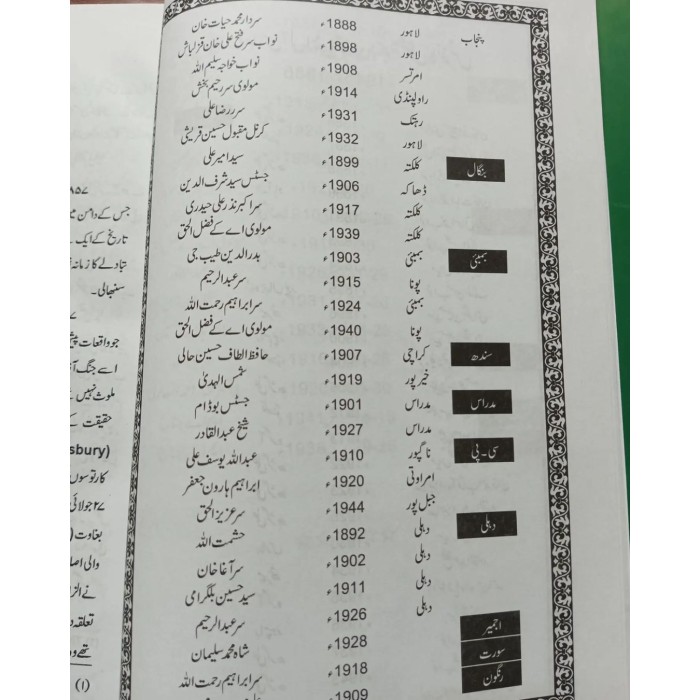 پنجاب لاہور 1888ء سردار محمد حیات خان
لاہور 1898ء نواب سر فتح علی خان قزلباش
امرتسر 1908ء نواب خواجہ سلیم اللہ
راولپنڈی 1914ء مولوی سر رحیم بخش
رہتک 1931ء سر رضا علی
لاہور 1932ء کرنل مقبول حسین قریشی
بنگال کلکتہ 1899ء سید امیر علی
ڈھاکہ 1906ء جسٹس سید شرف الدین
کلکتہ 1917ء سر اکبر نذر علی حیدری
کلکتہ 1939ء مولوی اے کے فضل الحق
بمبئی بمبئی 1903ء بدرالدین طیب جی
پونا 1915ء سر عبدالرحیم
بمبئی 1924ء سر ابراہیم رحمت اللہ
پونا 1940ء مولوی اے کے فضل الحق
سندھ کراچی 1907ء حافظ الطاف حسین حالی
خیرپور 1919ء شمس الہدیٰ
مدراس مدراس 1901ء جسٹس بوڈام
مدراس 1927ء شیخ عبدالقادر
سی۔پی ناگپور 1910ء عبداللہ یوسف علی
امراوتی 1920ء ابراہیم ہارون جعفر
جبل پور 1944ء سر عزیز الحق
دہلی دہلی 1892ء حشمت اللہ
دہلی 1902ء سر آغا خان
دہلی 1911ء سید حسین بلگرامی
دہلی 1926ء سر عبدالرحیم
اجمیر 1928ء شاہ محمد سلیمان
سورت 1918ء سر ابراہیم رحمت اللہ
رنگون 1909ء
۸۵۷
جس کے دامن میں
تاریخ کے ایک
تبادلے کا زمانہ
سنبھالی۔
جو واقعات پیش
اسے جنگ آ
ملوث نہیں
حقیقت کے
(sbury
کارتوسوں
۲۷ جولائی
بغاوت (
والی اصلا
نے الز
تعلقہ د
تھے وہ
(۱)